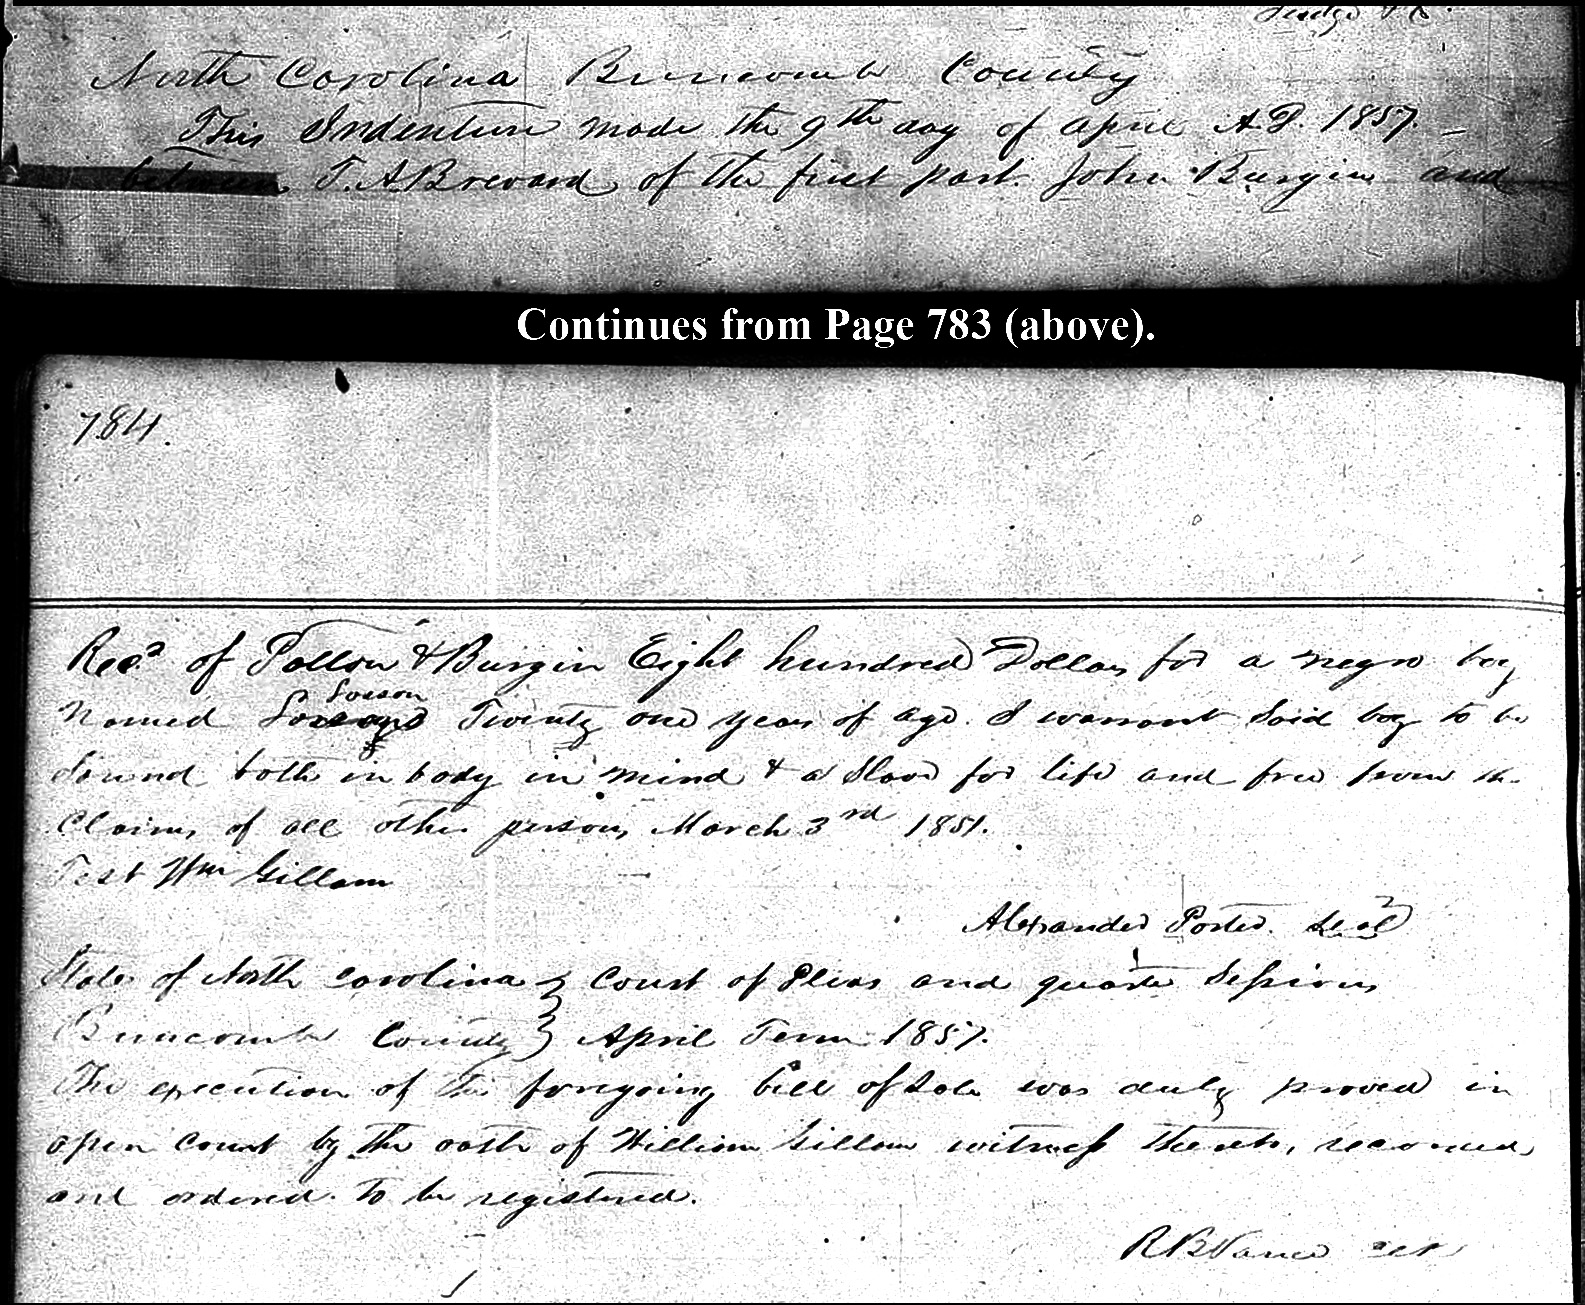 North Carolina Buncomb County
This Indenture made the 9th day of april A.D. 1857. –
between T. A Brevard of the first part. John Burgin and
Continues from Page 783 (above).
784.
Recd of Patton & Burgin Eight hundred Dollars for a negro boy
Named Twenty one years of age. I warrant Said boy to be
Sound both in body in mind & a Slave for life and free from the
Claims of all other persons March 3rd 1851.
Test Wm Gillam
Alexander Porter. Seal
State of North Carolina } Court of Pleas and quarter Sessions
Buncomb County } April Term 1857.
The execution of the foregoing bill of Sale was duly proved in
open Court by the oath of William Gillam witness thereto, recorded
and ordered to be registered.
R B Vance